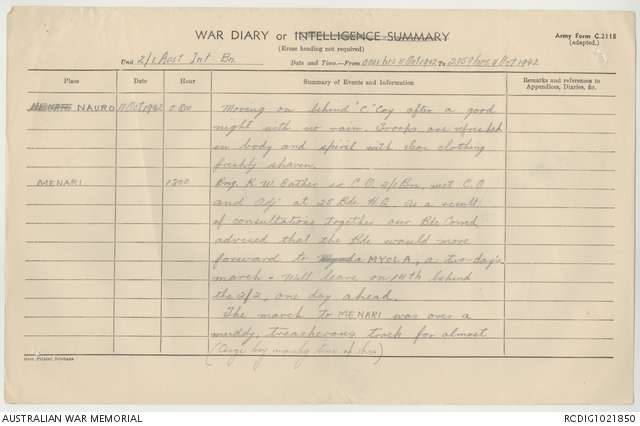 WAR DIARY or INTELLIGENCE SUMMARY
(Erase heading not required)
Army Form C.2118
(adapted.)
Unit 2/1 Aust Inf Bn.
Date and Time—From 0001 hrs 11 Oct 1942 To 2359 hrs 11 Oct 1942
Place
Date
Hour
Summary of Events and Information
Remarks and references to
Appendices, Diaries, &c.
NAURO 11 Oct 1942 Moving on behind "C" Coy after a good
night with no rain. Troops are refreshed
in body and spirit with clean clothing
freshly shaven.
MENARI 1300 Brig. K. W. Eather ex C.O. 2/1 Bn. met C.O
and Adj at 25 Bde H.Q. As a result
of consultations together our Bde Comd
advised that the Bde would move
forward to MYOLA, a two-day's
march & will leave on 14th behind
the 2/2, one day ahead.
The march to MENARI was over a
muddy, treacherous track for almost
Govt. Printer, Brisbane
AUSTRALIAN WAR MEMORIAL
RCDIG1021850